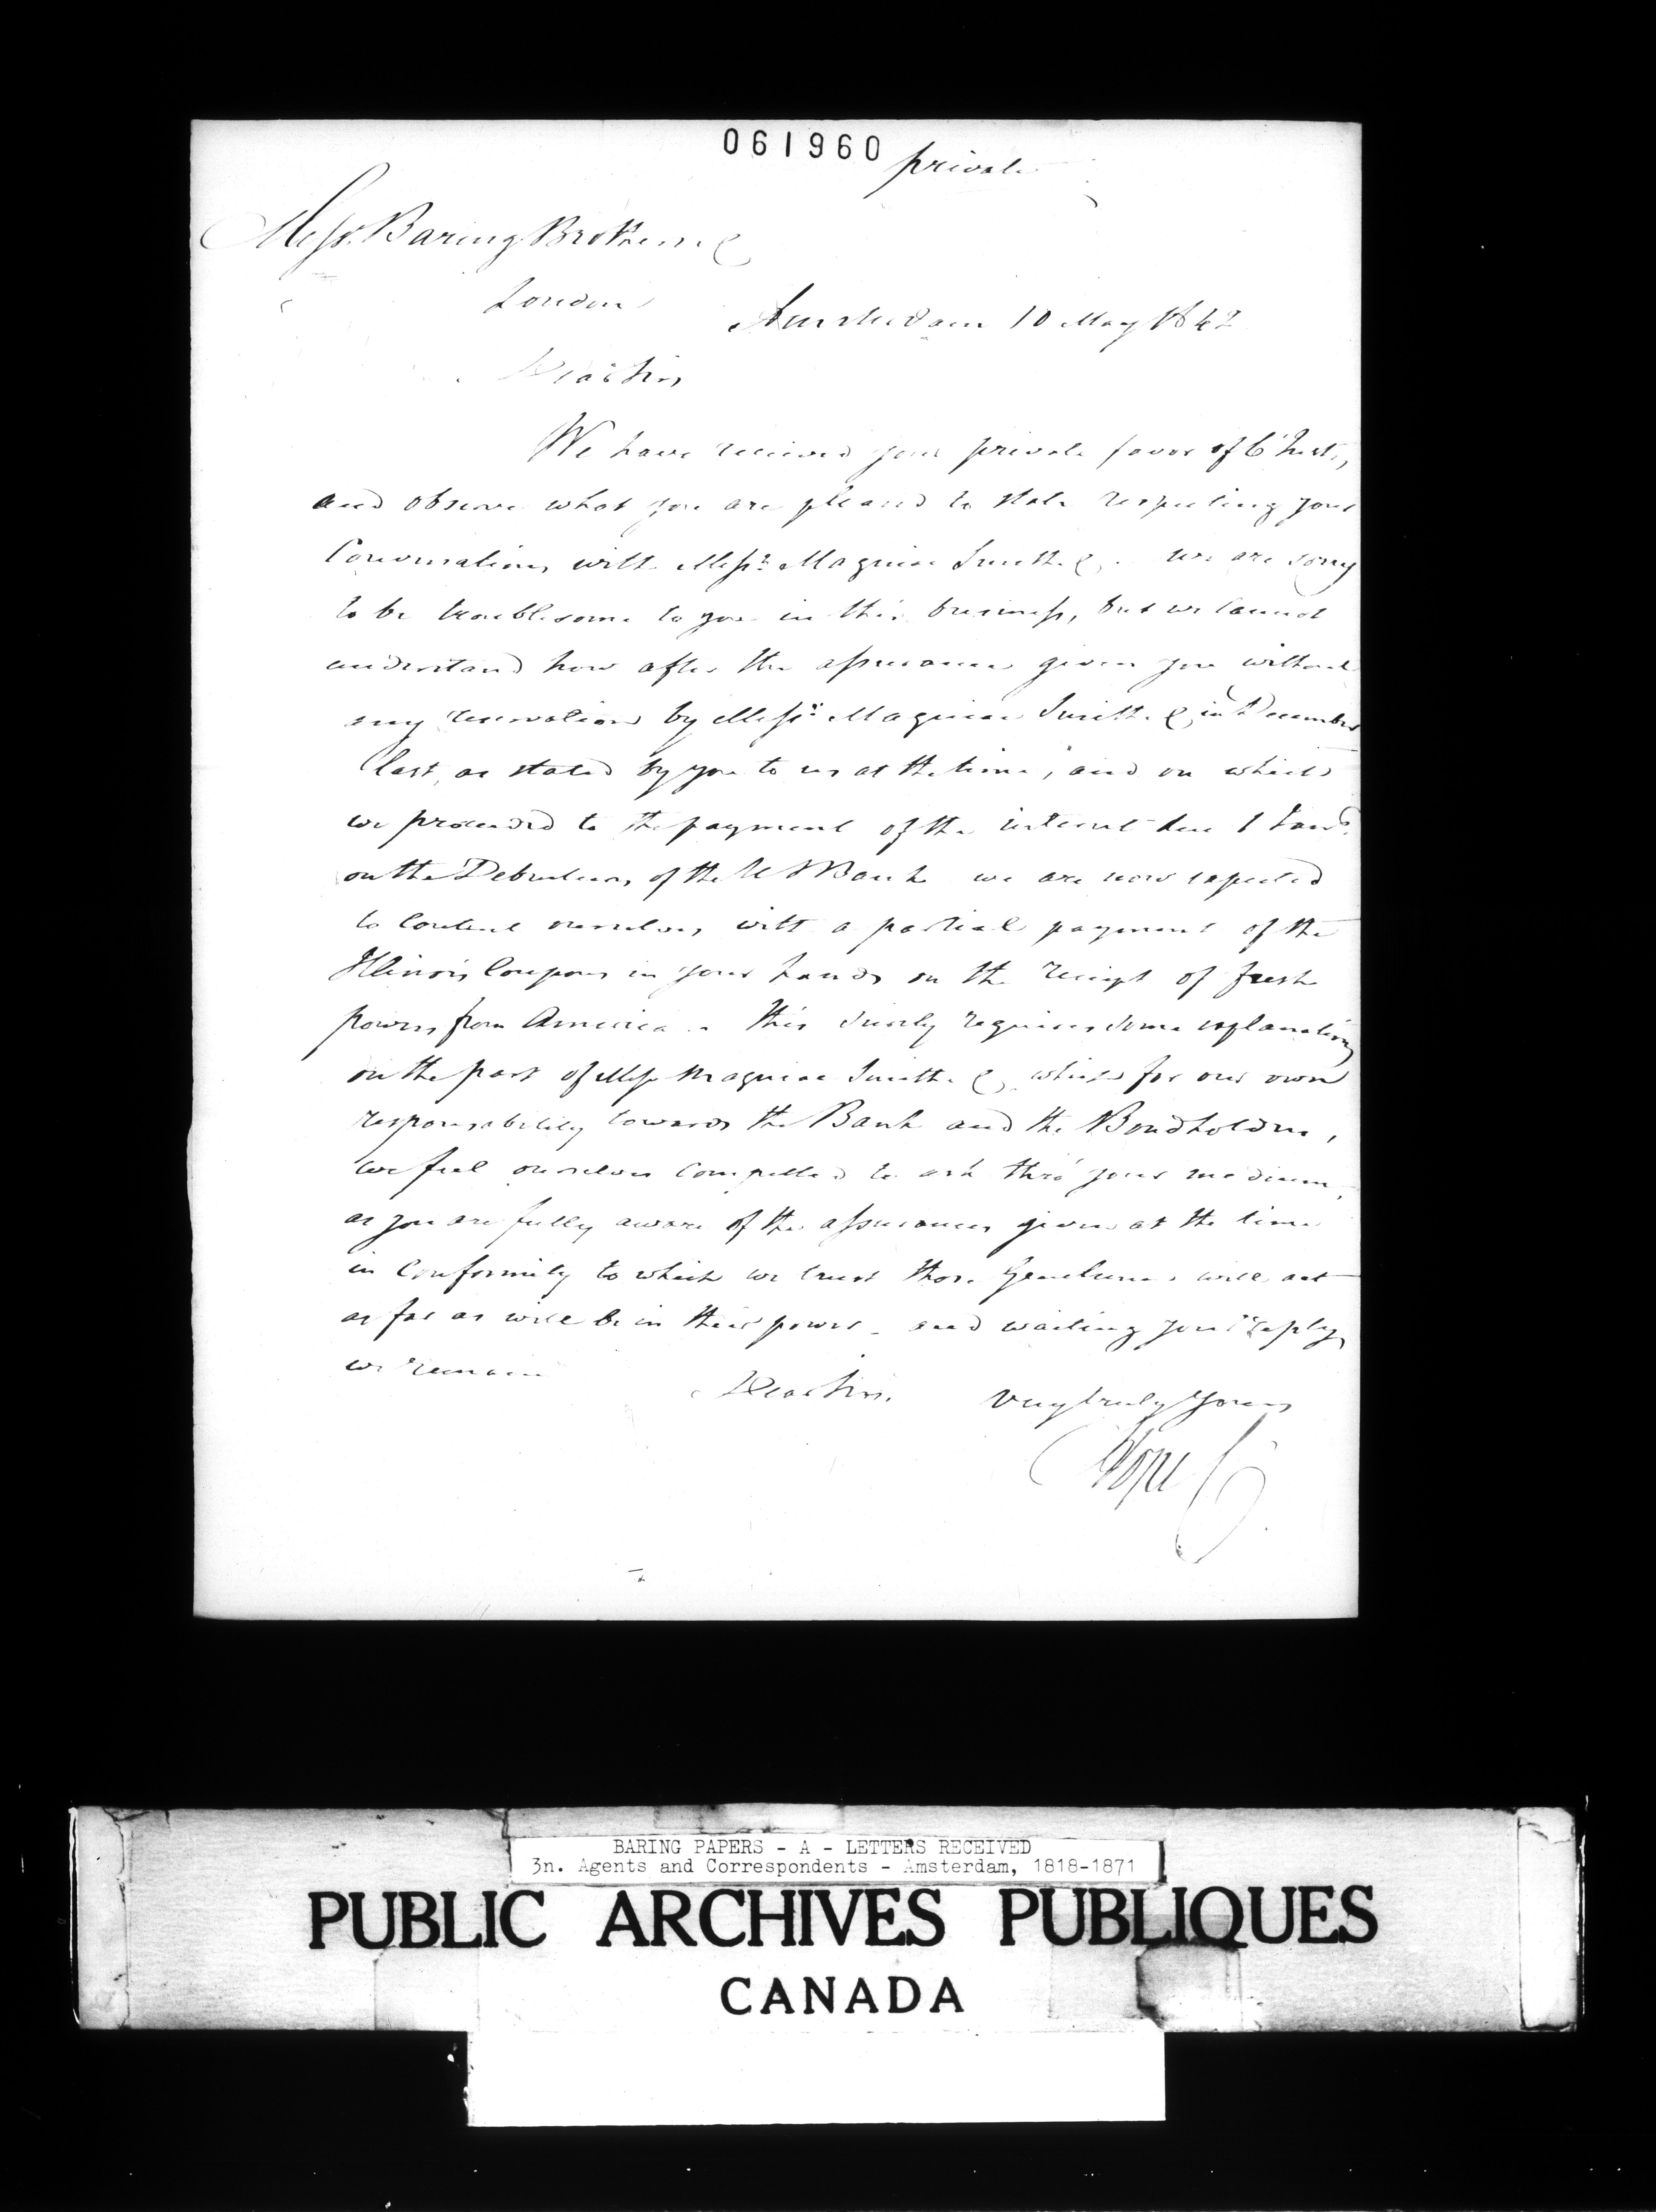 061960 private
Messrs. Baring Brothers & C
London
Amsterdam 10 May 1842
Dear Sirs
We have received your private favor of 6 Inst.,
and observe what you are pleased to state respecting your
Conversations with Messrs. Magniac Smith & C, we are sorry
to be troublesome to you in this business, but we cannot
understand how after the assurance given you without
any reservation by Messrs. Magniac Smith & C, in December
last, as stated by you to us at the time, and on which
we proceeded to the payment of the interest due 1 Jany.
on the Debentures of the U S Bank we are now expected
to content ourselves with a partial payment of the
Illinois Coupons in your hands on the receipt of fresh
powers from America. This surely requires some explanation
on the part of Messrs Magniac Smith & C, which for our own
responsability towards the Bank and the Bondholders,
we feel ourselves compelled to ask thro' your medium,
as you are fully aware of the assurances given at the time
in Conformity to which we trust those Gentlemen will act
as far as will be in their power - and waiting your reply,
we remain
Dear Sirs.
Very truly Yours
Hope C
BARING PAPERS - A - LETTERS RECEIVED
3n. Agents and Correspondents - Amsterdam, 1818-1871
PUBLIC ARCHIVES PUBLIQUES
CANADA